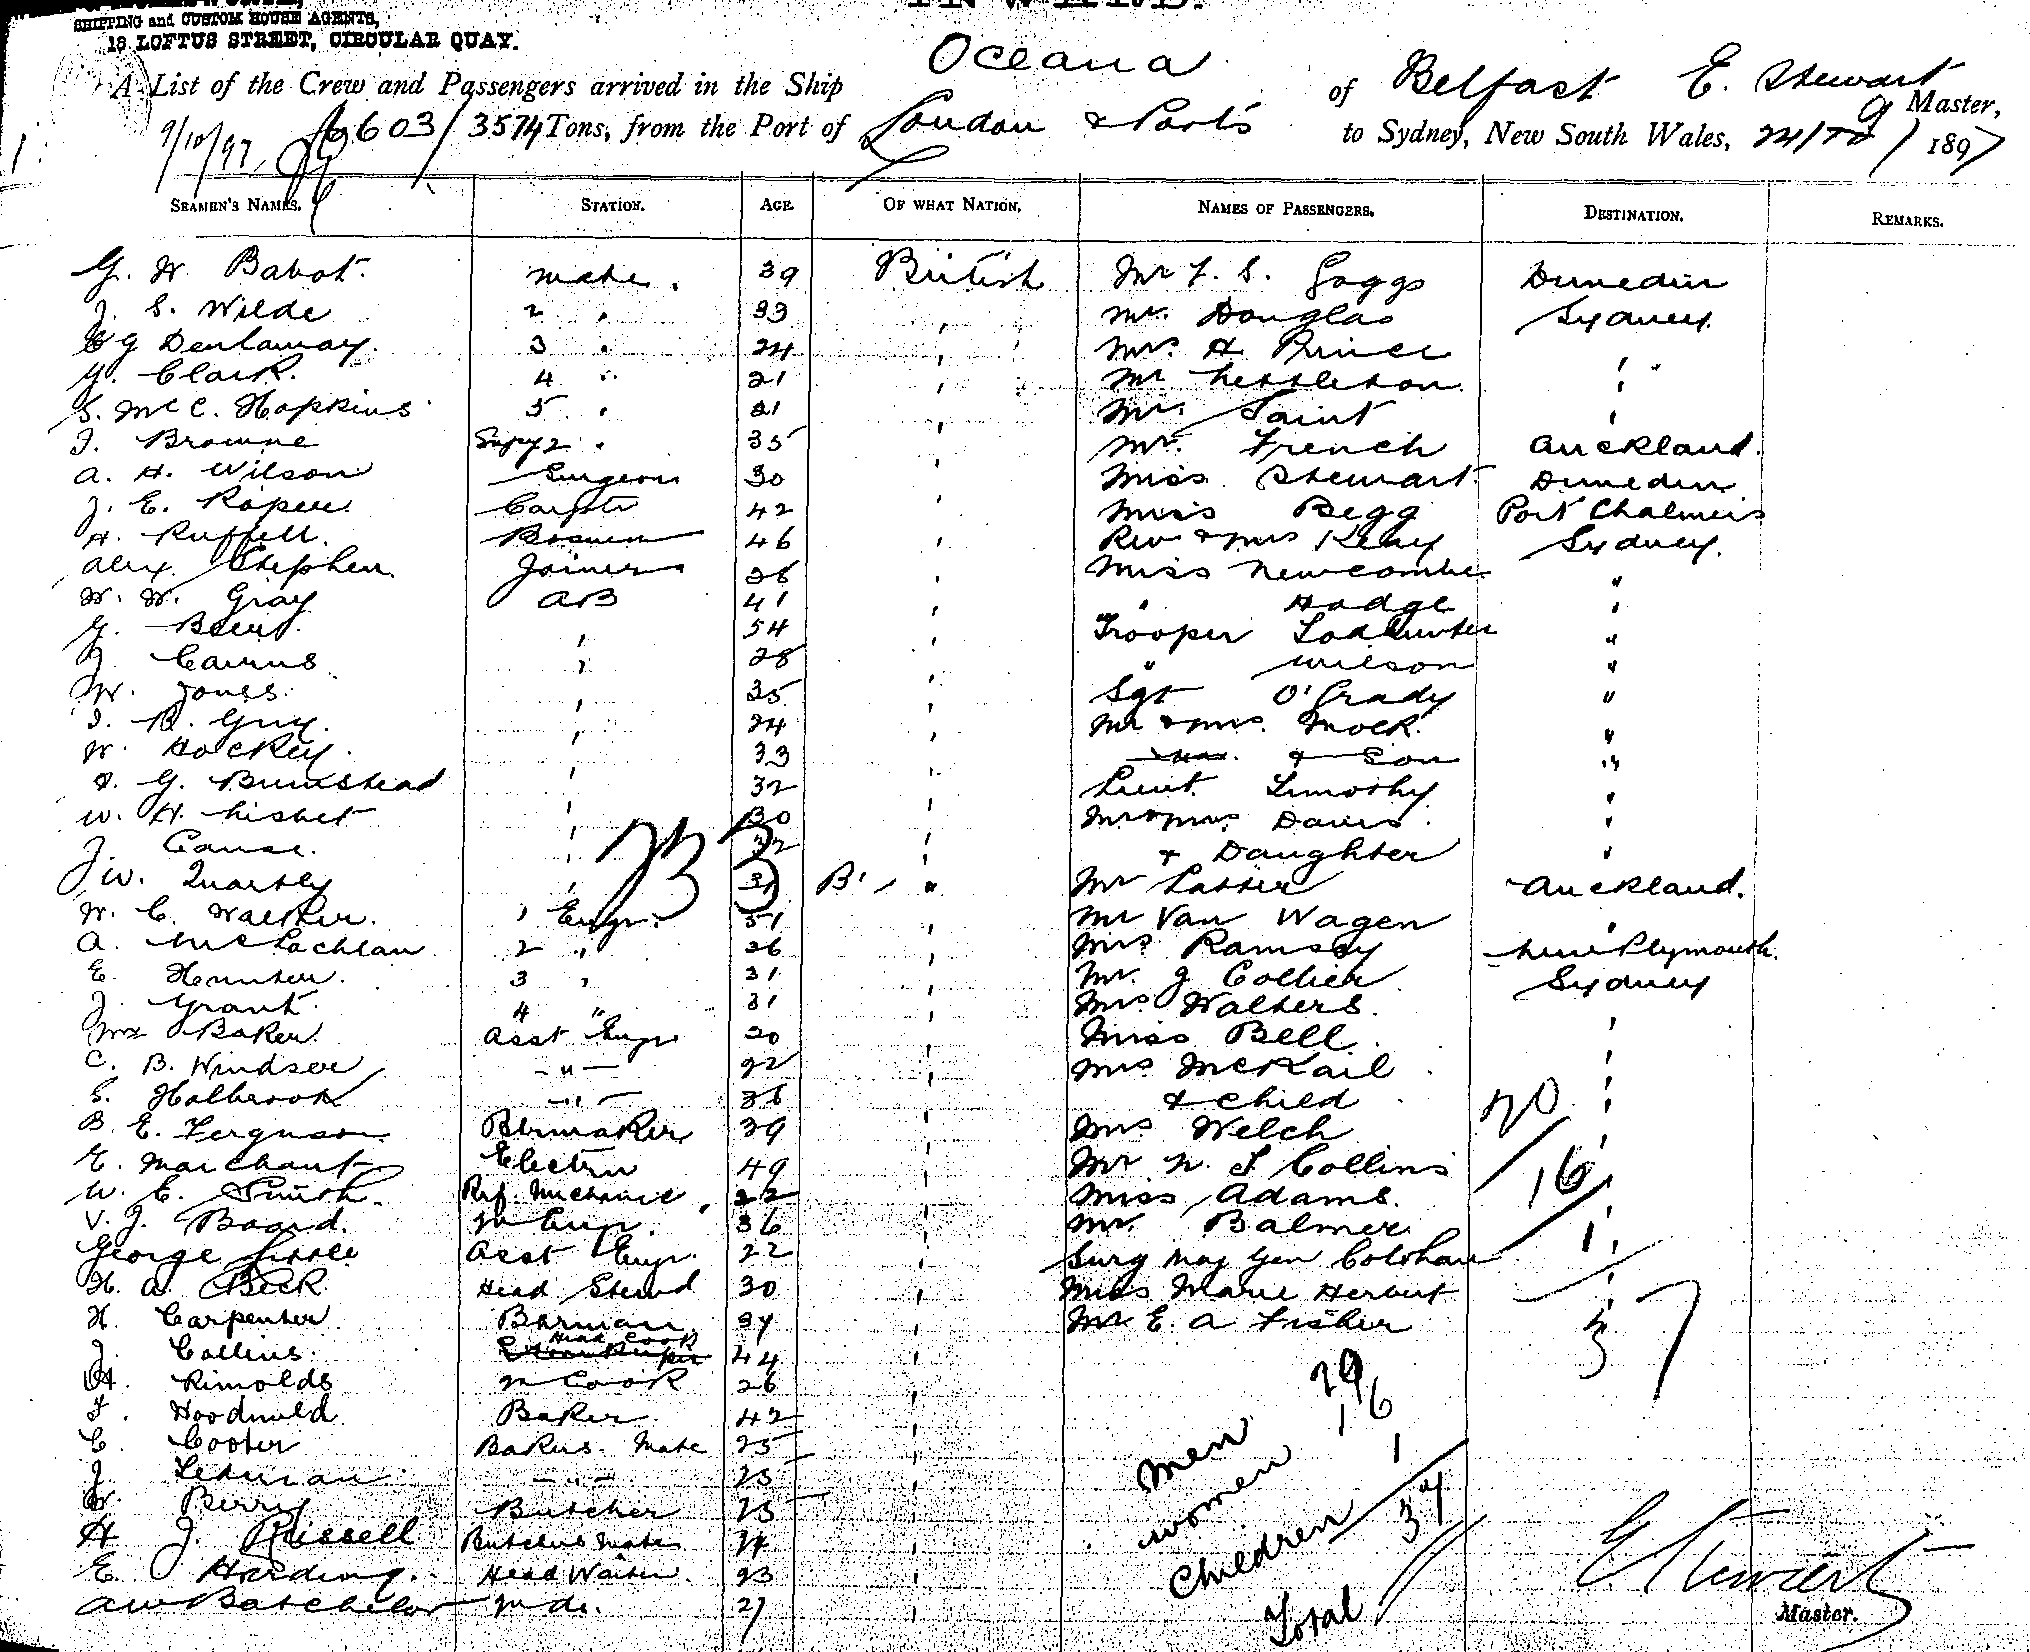 SHIPPING and CUSTOM HOUSE AGENTS,
18 LOFTUS STREET, CIRCULAR QUAY.
INWARD.
A List of the Crew and Passengers arrived in the Ship Oceana of Belfast E. Stewart Master,
9/10/97 6603/3574 Tons, from the Port of London & Ports to Sydney, New South Wales, 1897
SEAMEN'S NAMES. STATION. AGE. OF WHAT NATION. NAMES OF PASSENGERS. DESTINATION. REMARKS.
G. W. Babot. mate. 39 British Mr F. S. Gaggs Dunedin
J. S. Wilde 2 " 33 " Mr. Douglas Sydney
3 " 24 " Mrs. H Prince
G. Clark. 4 " 21 " Mr Nettleton "
S. McC. Hopkins 5 " 21 " Mr. Saint "
J. Browne Supy 2 " 35 " Mr. French Auckland.
A. H. Wilson Surgeon 30 Miss Stewart Dunedin
J. E. Roper Carptr 42 " Miss Begg Port Chalmers
H. Ruffell. Bosun 46 " Rev & Mrs Sydney.
Alex. Stephen Joiner 38 " Miss Newcombe "
W. W. Gray AB 41 " " Hodge "
G. " 54 " Trooper "
J. Cairns " 28 " " Wilson "
W. Jones. " 35 " Sgt O'Grady "
J. B. Guy. " 24 " Mr & Mrs. Mock. "
W. Hockey. 33 " & Son "
G. Bumstead " 32 " Lieut Timothy "
W. H. Nisbet " 30 " Mr & Mrs Davis. "
J. Cause. " 32 " & Daughter "
J W. Quartly " 31 B' " Mr Latter Auckland.
W. C. Walker. 1 Engr. 51 " Mr Van Wagen "
A. McLachlan 2 " 26 " Mrs Ramsay New Plymouth.
E. Hunter. 3 " 31 " Mr. J Collier Sydney
J. Grant. 4 " 31 " Mrs Walters.
Wm Baker Asst Engr 20 " Miss Bell. "
C. B. Windsor -"- 22 " Mrs McKail "
S. Holbrook -"- 28 " & child "
B. E. Ferguson Blrmaker 39 " Mrs Welch "
E. Marchant Electrn 49 " Mr N. S Collins 20
W. E. Smith. Ref. Mechanic 22 " Miss Adams. 16
V. J. Board. Engr. 36 " Mr. Balmer 1
George Little Asst Engr. 22 " Surg Maj Gen Colohan
H. A. Beck Head Stewd 30 " Miss Marie Herbert
H. Carpenter Barman 34 " Mr E. A Fisher 37
J. Collins. Head Cook 44 "
H. Rimolds Cook 26 "
F. Baker 42 "
C. Cooter Bakers Mate 25 "
J. Ledman -"- 25 "
W. Berry Butcher 25 "
H J. Russell Butchers Mate 24 "
E. Harding. Head Waiter. 23 "
A W Batchelor do. 27 "
73
Men 20
Women 16
Children 1
Total 37
E Stewart
Master.